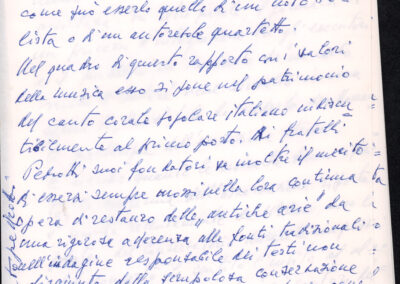 come può esserlo quello di un noto so-
lista o di un autorevole quartetto.
Nel quadro di questo rapporto con i valori
della musica esso si pone nel patrimonio
del canto corale popolare italiano indiscu-
tibilmente al primo posto. Ai fratelli
Pedrotti suoi fondatori va inoltre il merito
di essersi sempre mossi nella loro continua
opera di restauro delle "antiche arie" da
una rigorosa aderenza alle fonti tradizionali
nell'indagine responsabile dei testi non
disgiunta dalla scrupolosa conservazione